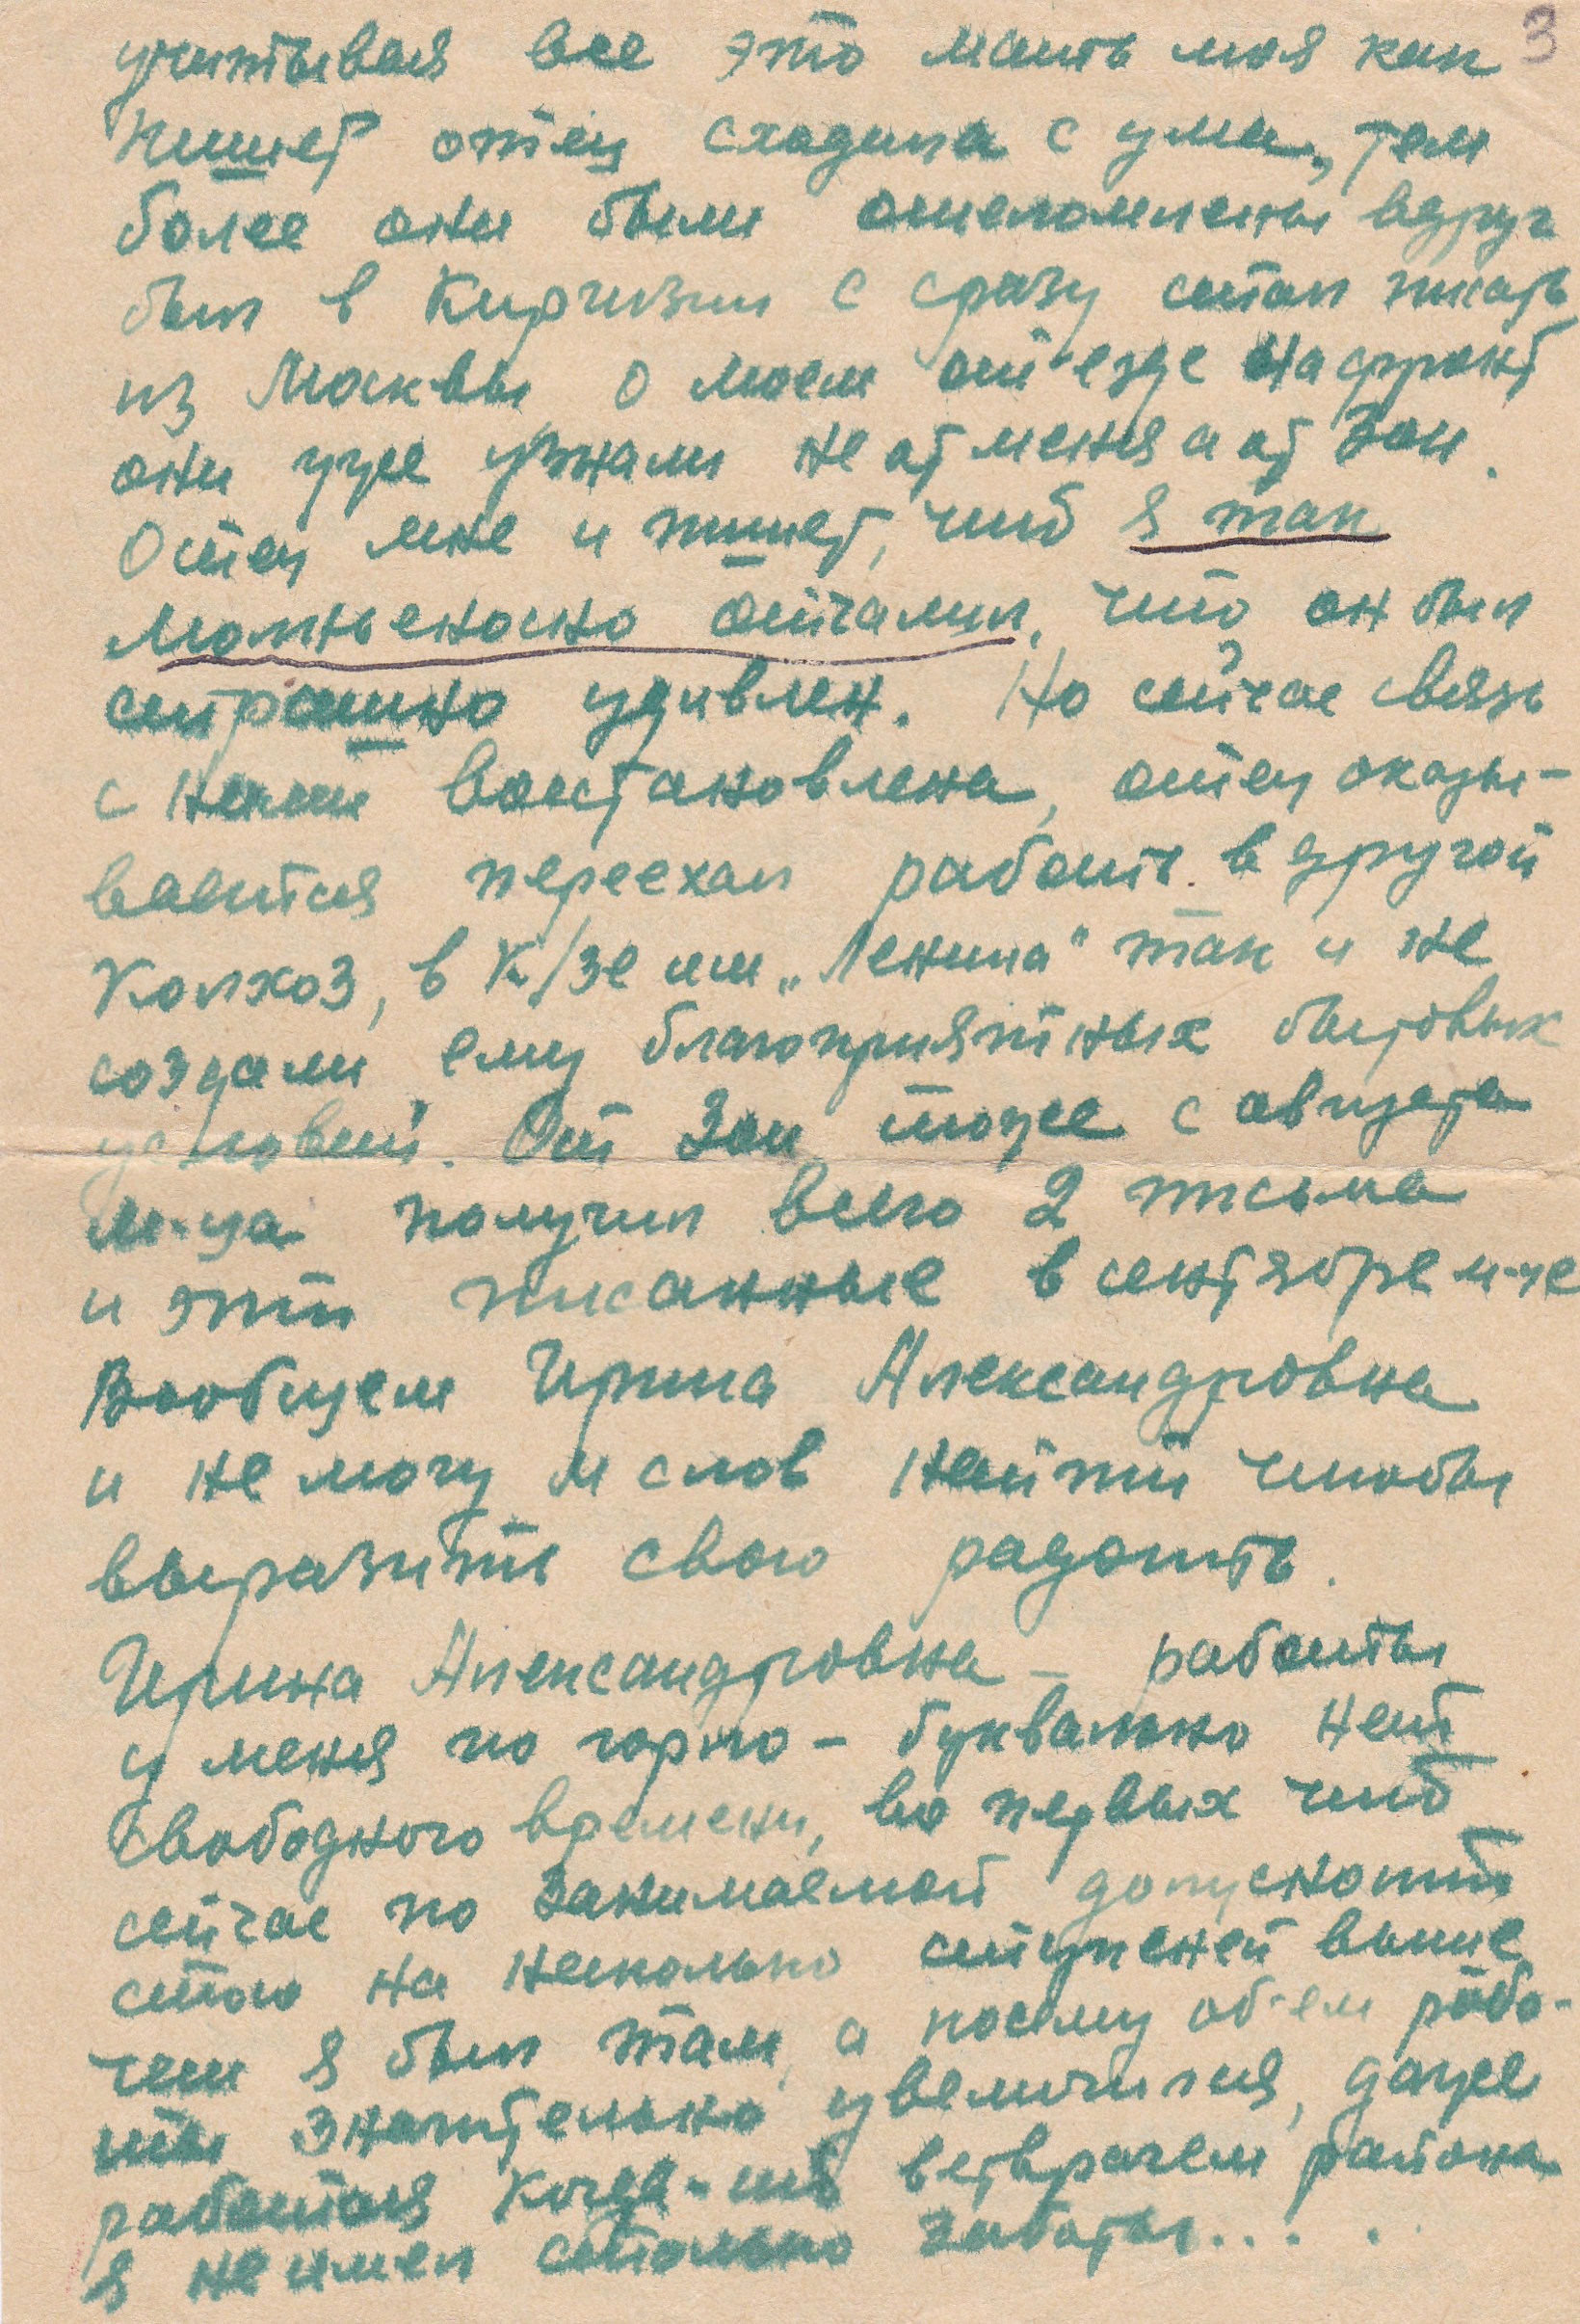 3
учитывая все это мать моя как
пишет отец сходила с ума, тем
более они были ошеломлены вдруг
был в Киргизии с сразу стал писать
из Москвы о моем от'езде на фронт
они уже узнали не от меня а от Зои.
Отец мне и пишет, что я так
молниеносно отчалил, что он был
страшно удивлен. Но сейчас связь
с ними восстановлена, отец оказы-
вается переехал работать в другой
колхоз, в к/зе им „Ленина" так и не
создали ему благоприятных бытовых
условий. От Зои тоже с августа
м-ца получил всего 2 письма
и эти писанные в сентябре м-це
Вообщем Ирина Александровна
и не могу и слов найти чтобы
выразить свою радость.
Ирина Александровна – работы
у меня по горло – буквально нет
свободного времени, во первых что
сейчас по занимаемой должности
стою на несколько ступеней выше
чем я был там, а посему об'ем рабо-
ты значительно увеличился, даже
работая когда-то ветврачем района
я не имел столько заботы.. . .